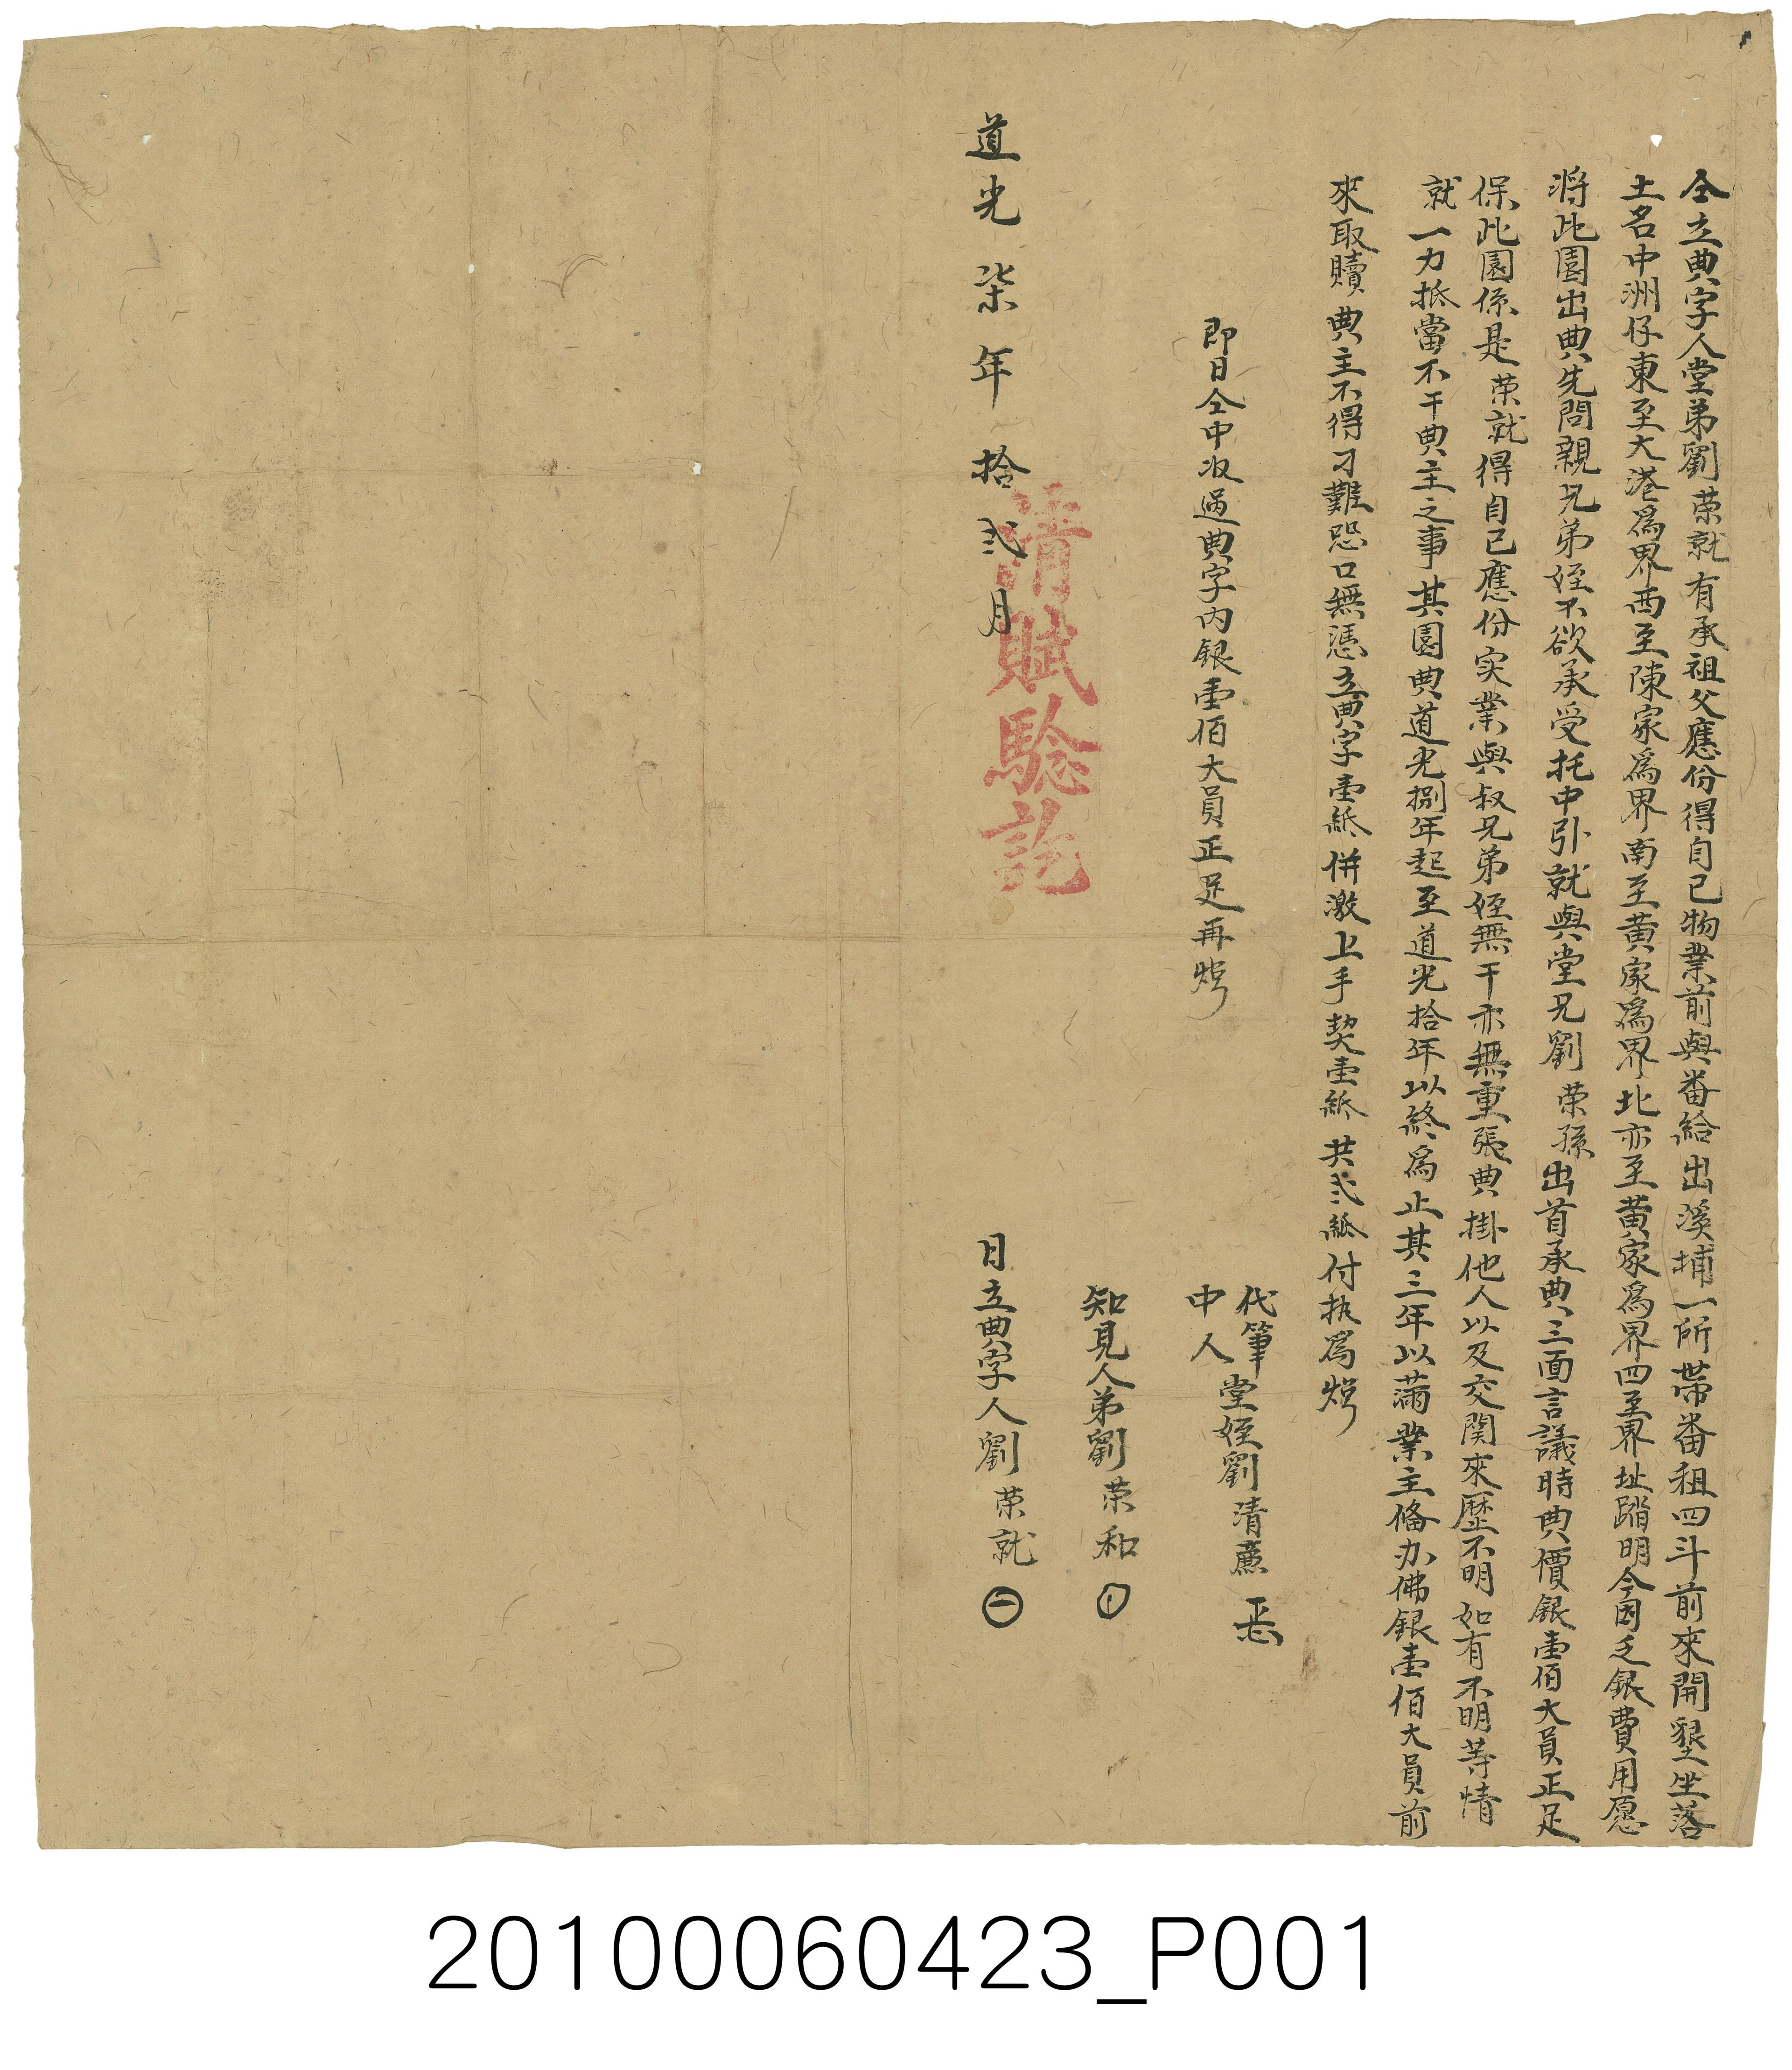 仝立典字人堂弟劉荣就有承祖父應份得自己物業前與番給出溪埔一所帶番租四斗前來開墾坐落
土名中洲仔東至大港爲界西至陳家爲界南至黄家爲界北亦至黄家爲界四至界址踏明今因乏銀費用愿
將此園出典先問親兄弟姪不欲承受托中引就與堂兄劉荣孫出首承典三面言議時典價銀壹佰大員正足
保此園係是荣就得自己應份实業與叔兄弟姪無干亦無重張典掛他人以及交関來歷不明如有不明等情
就一力抵當不干典主之事其園典道光捌年起至道光拾年以終爲止其三年以滿業主俻办佛銀壹佰大員前
來取贖典主不得刁難恐口無憑立典字壹紙併激上手契壹紙共弍紙付执爲炤
即日仝中收過典字内銀壹佰大員正足再炤
代筆
中人
堂姪劉清薦
知見人弟劉荣和
清賦驗訖
道光柒年拾弍月
日立典字人劉荣就
20100060423_P001